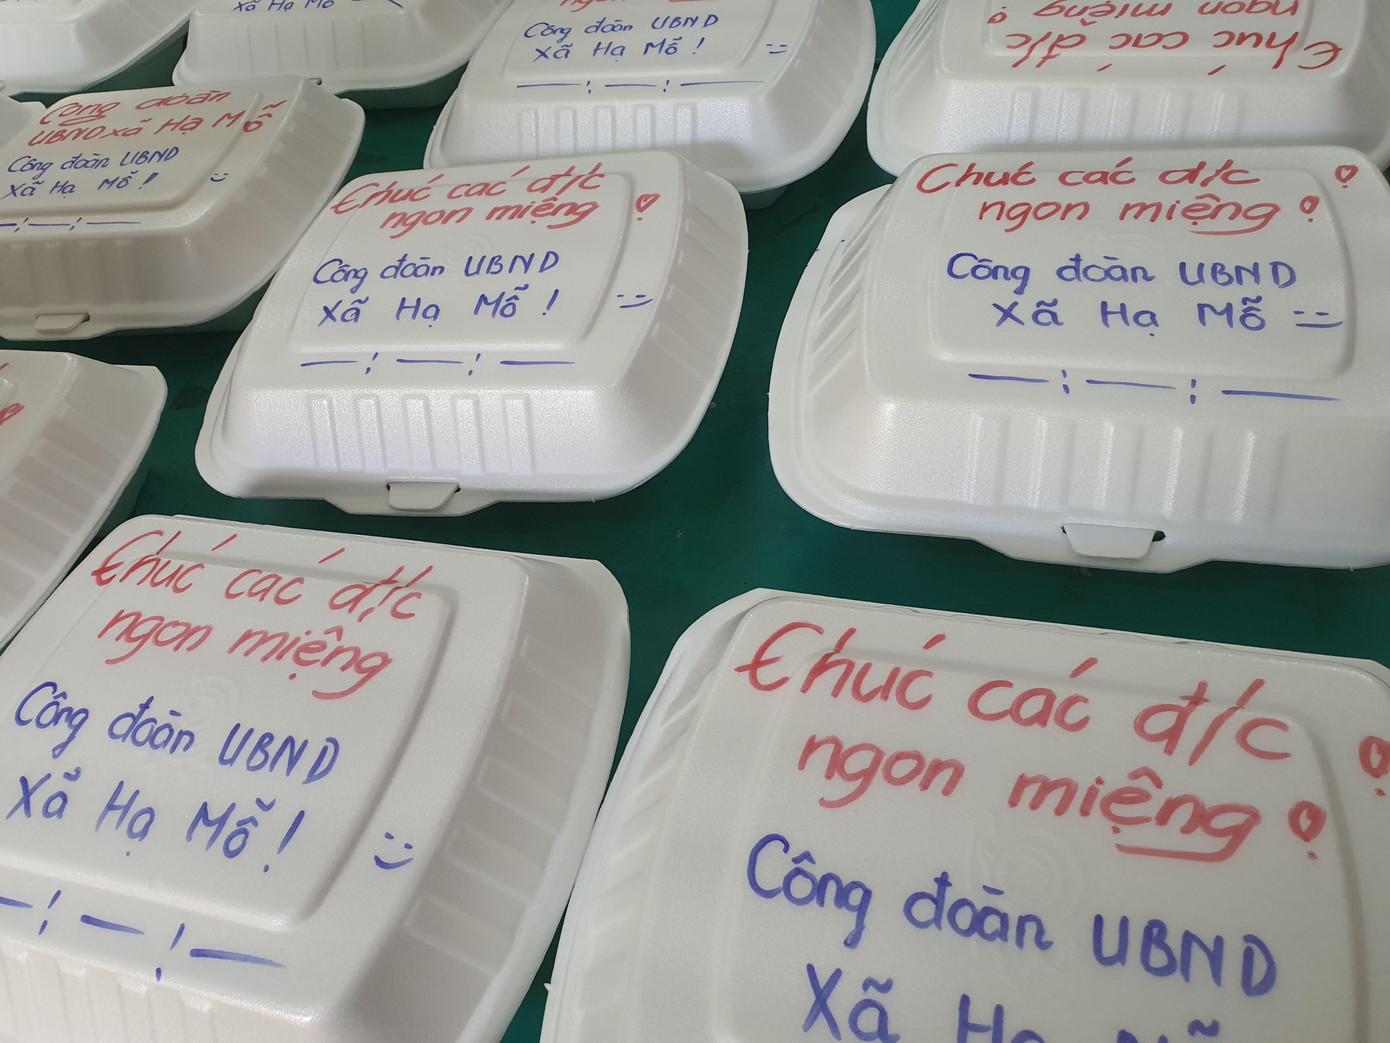 Xã Hạ Mỗ
Công đoàn UBND
Xã Hạ Mỗ !
Chúc các đ/c
ngon miệng
Công đoàn
UBND xã Hạ Mỗ
Công đoàn UBND
Xã Hạ Mỗ !
Chúc các đ/c
ngon miệng
Công đoàn UBND
Xã Hạ Mỗ !
Chúc các đ/c
ngon miệng
Công đoàn UBND
Xã Hạ Mỗ
Chúc các đ/c
ngon miệng
Công đoàn UBND
Xã Hạ Mỗ !
Chúc các đ/c
ngon miệng
Công đoàn UBND
Xã Hạ Mỗ